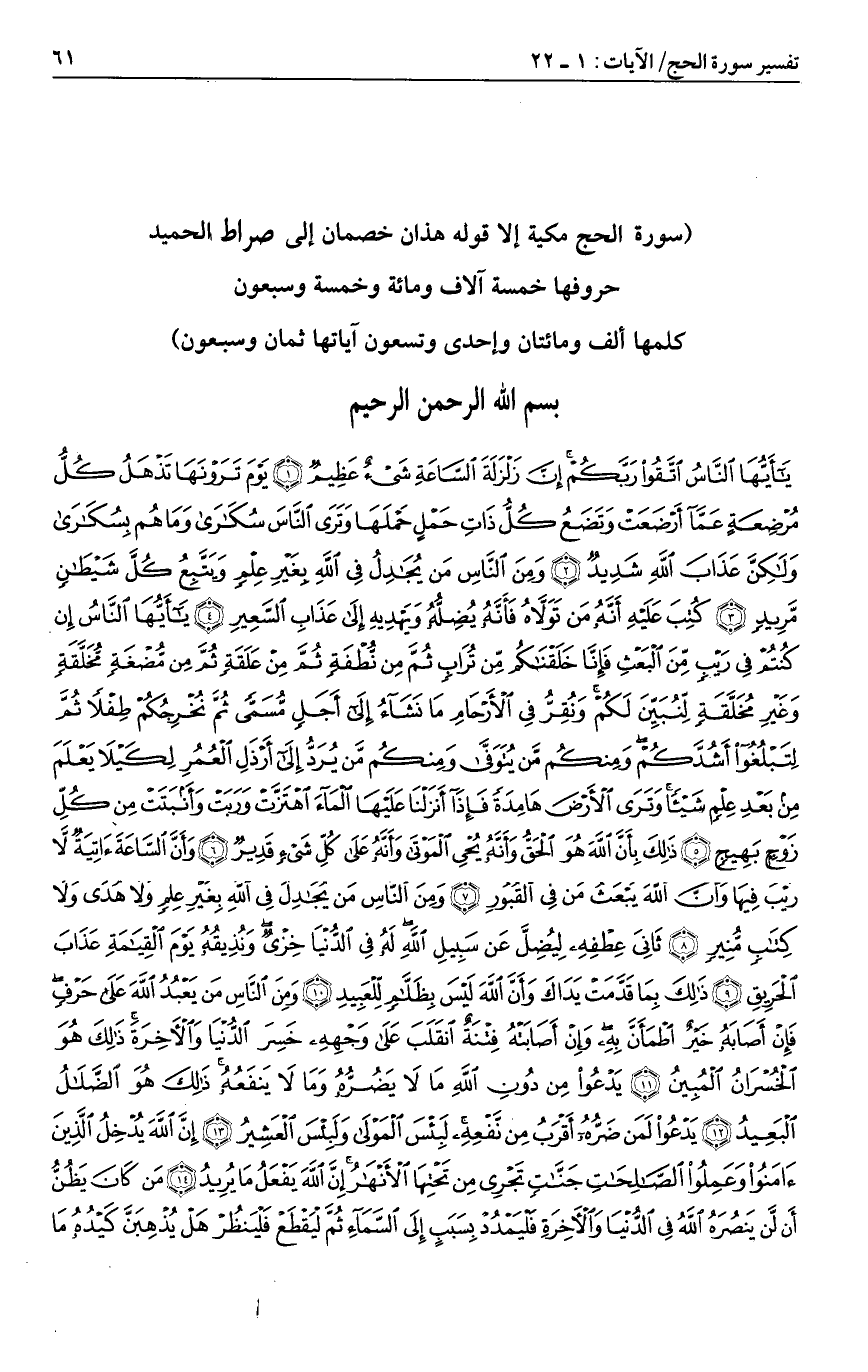 تفسير سورة الحج/ الآيات: ١ ـ ٢٢
٦١
(سورة الحج مكية إلا قوله هذان خصمان إلى صراط الحميد
حروفها خمسة آلاف ومائة وخمسة وسبعون
كلمها ألف ومائتان وإحدى وتسعون آياتها ثمان وسبعون)
بسم الله الرحمن الرحيم
يَٰٓأَيُّهَا ٱلنَّاسُ ٱتَّقُوا۟ رَبَّكُمْ ۚ إِنَّ زَلْزَلَةَ ٱلسَّاعَةِ شَىْءٌ عَظِيمٌ ﴿١﴾ يَوْمَ تَرَوْنَهَا تَذْهَلُ كُلُّ
مُرْضِعَةٍ عَمَّآ أَرْضَعَتْ وَتَضَعُ كُلُّ ذَاتِ حَمْلٍ حَمْلَهَا وَتَرَى ٱلنَّاسَ سُكَٰرَىٰ وَمَا هُم بِسُكَٰرَىٰ
وَلَٰكِنَّ عَذَابَ ٱللَّهِ شَدِيدٌ ﴿٢﴾ وَمِنَ ٱلنَّاسِ مَن يُجَٰدِلُ فِى ٱللَّهِ بِغَيْرِ عِلْمٍ وَيَتَّبِعُ كُلَّ شَيْطَٰنٍ
مَّرِيدٍ ﴿٣﴾ كُتِبَ عَلَيْهِ أَنَّهُۥ مَن تَوَلَّاهُ فَأَنَّهُۥ يُضِلُّهُۥ وَيَهْدِيهِ إِلَىٰ عَذَابِ ٱلسَّعِيرِ ﴿٤﴾ يَٰٓأَيُّهَا ٱلنَّاسُ إِن
كُنتُمْ فِى رَيْبٍ مِّنَ ٱلْبَعْثِ فَإِنَّا خَلَقْنَٰكُم مِّن تُرَابٍ ثُمَّ مِن نُّطْفَةٍ ثُمَّ مِنْ عَلَقَةٍ ثُمَّ مِن مُّضْغَةٍ مُّخَلَّقَةٍ
وَغَيْرِ مُخَلَّقَةٍ لِّنُبَيِّنَ لَكُمْ ۚ وَنُقِرُّ فِى ٱلْأَرْحَامِ مَا نَشَآءُ إِلَىٰٓ أَجَلٍ مُّسَمًّى ثُمَّ نُخْرِجُكُمْ طِفْلًا ثُمَّ
لِتَبْلُغُوٓا۟ أَشُدَّكُمْ ۖ وَمِنكُم مَّن يُتَوَفَّىٰ وَمِنكُم مَّن يُرَدُّ إِلَىٰٓ أَرْذَلِ ٱلْعُمُرِ لِكَيْلَا يَعْلَمَ
مِنۢ بَعْدِ عِلْمٍ شَيْـًٔا ۚ وَتَرَى ٱلْأَرْضَ هَامِدَةً فَإِذَآ أَنزَلْنَا عَلَيْهَا ٱلْمَآءَ ٱهْتَزَّتْ وَرَبَتْ وَأَنۢبَتَتْ مِن كُلِّ
زَوْجٍۭ بَهِيجٍ ﴿٥﴾ ذَٰلِكَ بِأَنَّ ٱللَّهَ هُوَ ٱلْحَقُّ وَأَنَّهُۥ يُحْىِ ٱلْمَوْتَىٰ وَأَنَّهُۥ عَلَىٰ كُلِّ شَىْءٍ قَدِيرٌ ﴿٦﴾ وَأَنَّ ٱلسَّاعَةَ ءَاتِيَةٌ لَّا
رَيْبَ فِيهَا وَأَنَّ ٱللَّهَ يَبْعَثُ مَن فِى ٱلْقُبُورِ ﴿٧﴾ وَمِنَ ٱلنَّاسِ مَن يُجَٰدِلُ فِى ٱللَّهِ بِغَيْرِ عِلْمٍ وَلَا هُدًى وَلَا
كِتَٰبٍ مُّنِيرٍ ﴿٨﴾ ثَانِىَ عِطْفِهِۦ لِيُضِلَّ عَن سَبِيلِ ٱللَّهِ ۖ لَهُۥ فِى ٱلدُّنْيَا خِزْىٌ ۖ وَنُذِيقُهُۥ يَوْمَ ٱلْقِيَٰمَةِ عَذَابَ
ٱلْحَرِيقِ ﴿٩﴾ ذَٰلِكَ بِمَا قَدَّمَتْ يَدَاكَ وَأَنَّ ٱللَّهَ لَيْسَ بِظَلَّٰمٍ لِّلْعَبِيدِ ﴿١٠﴾ وَمِنَ ٱلنَّاسِ مَن يَعْبُدُ ٱللَّهَ عَلَىٰ حَرْفٍ ۖ
فَإِنْ أَصَابَهُۥ خَيْرٌ ٱطْمَأَنَّ بِهِۦ ۖ وَإِنْ أَصَابَتْهُ فِتْنَةٌ ٱنقَلَبَ عَلَىٰ وَجْهِهِۦ خَسِرَ ٱلدُّنْيَا وَٱلْءَاخِرَةَ ۚ ذَٰلِكَ هُوَ
ٱلْخُسْرَانُ ٱلْمُبِينُ ﴿١١﴾ يَدْعُوا۟ مِن دُونِ ٱللَّهِ مَا لَا يَضُرُّهُۥ وَمَا لَا يَنفَعُهُۥ ۚ ذَٰلِكَ هُوَ ٱلضَّلَٰلُ
ٱلْبَعِيدُ ﴿١٢﴾ يَدْعُوا۟ لَمَن ضَرُّهُۥٓ أَقْرَبُ مِن نَّفْعِهِۦ ۚ لَبِئْسَ ٱلْمَوْلَىٰ وَلَبِئْسَ ٱلْعَشِيرُ ﴿١٣﴾ إِنَّ ٱللَّهَ يُدْخِلُ ٱلَّذِينَ
ءَامَنُوا۟ وَعَمِلُوا۟ ٱلصَّٰلِحَٰتِ جَنَّٰتٍ تَجْرِى مِن تَحْتِهَا ٱلْأَنْهَٰرُ ۚ إِنَّ ٱللَّهَ يَفْعَلُ مَا يُرِيدُ ﴿١٤﴾ مَن كَانَ يَظُنُّ
أَن لَّن يَنصُرَهُ ٱللَّهُ فِى ٱلدُّنْيَا وَٱلْءَاخِرَةِ فَلْيَمْدُدْ بِسَبَبٍ إِلَى ٱلسَّمَآءِ ثُمَّ لْيَقْطَعْ فَلْيَنظُرْ هَلْ يُذْهِبَنَّ كَيْدُهُۥ مَا